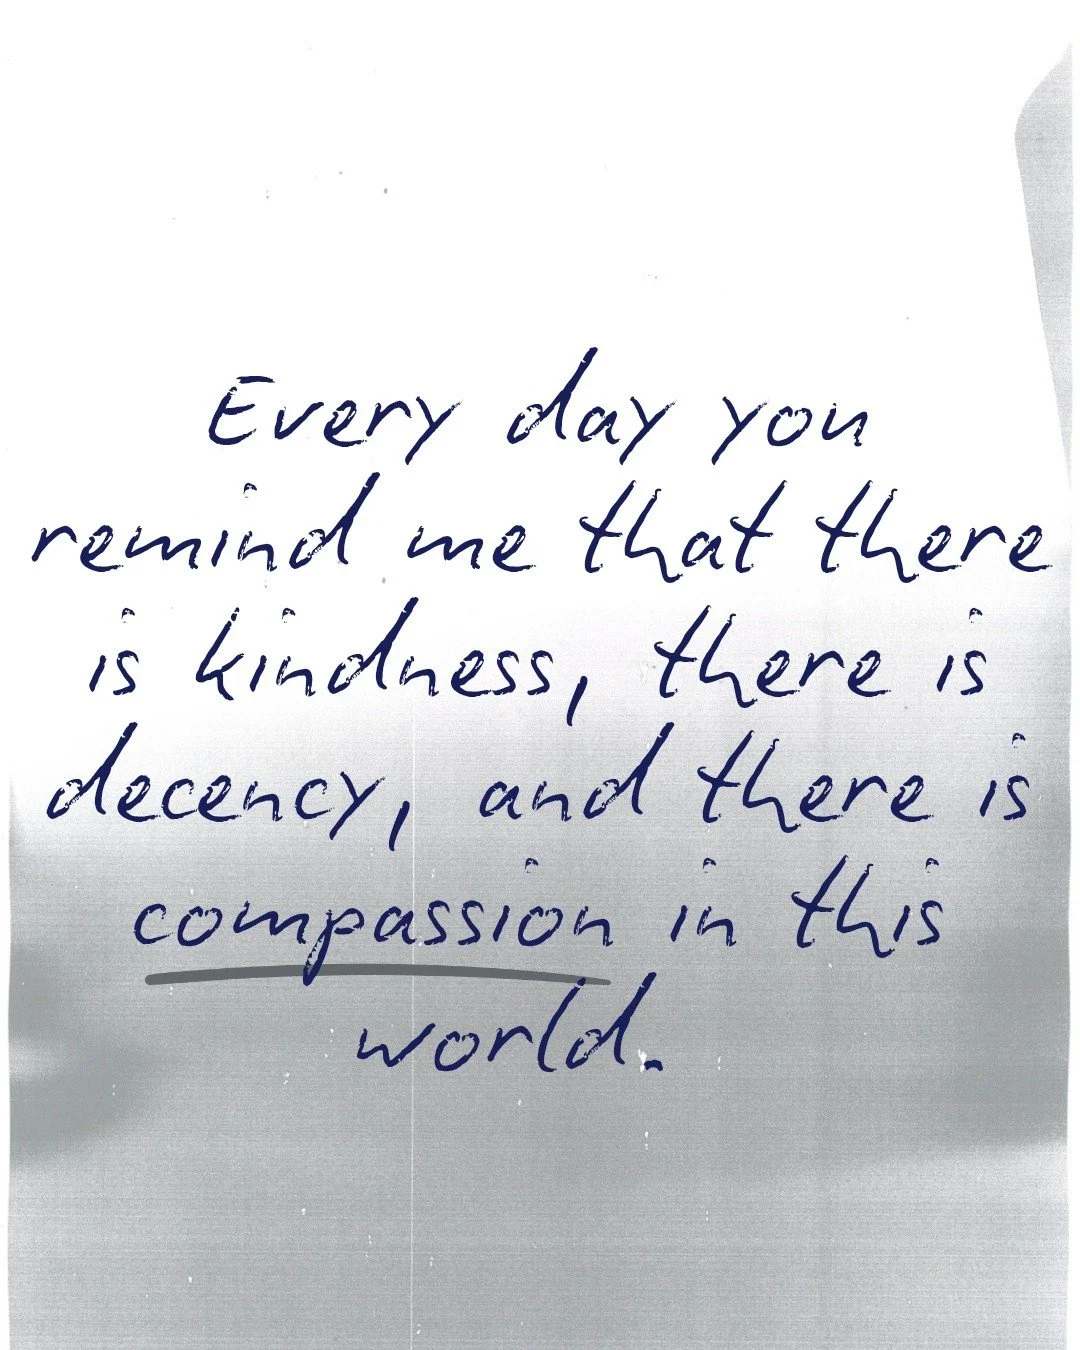 Every day you
remind me that there
is kindness, there is
decency, and there is
compassion in this
world.